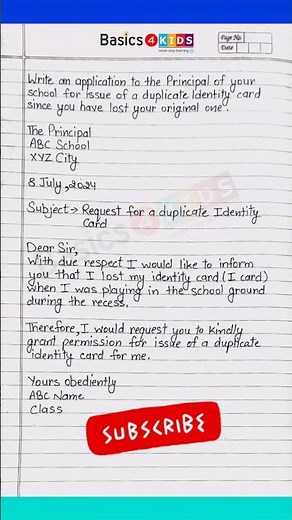 Basics 4 KIDS
Page No.
Date
Write an application to the Principal of your
school for issue of a duplicate Identity card
since you have lost your original one .
The Principal
ABC School
XYZ City
8 July, 2024
Subject→ Request for a duplicate Identity
Card
Dear Sir,
With due respect I would like to inform
you that I lost my identity card (I card)
when I was playing in the school ground
during the recess.
Therefore, I would request you to kindly
grant permission for issue of a duplicate
identity card for me.
Yours obediently
ABC Name
Class
SUBSCRIBE